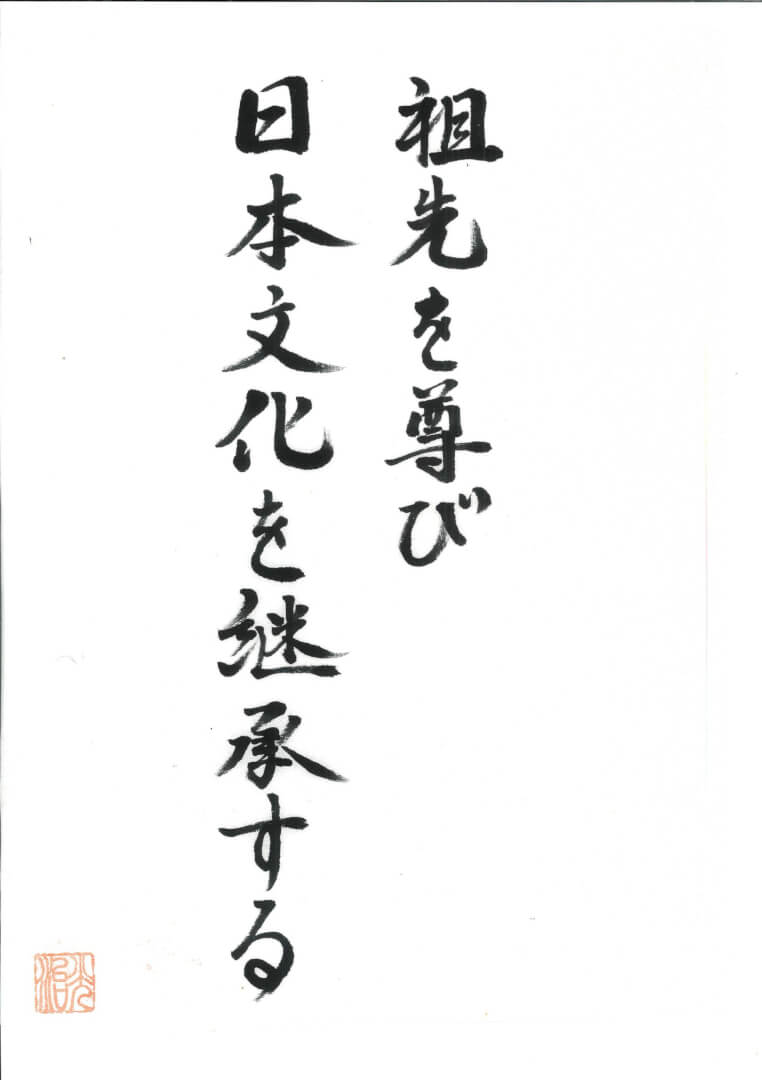 祖先を尊び
日本文化を継承する